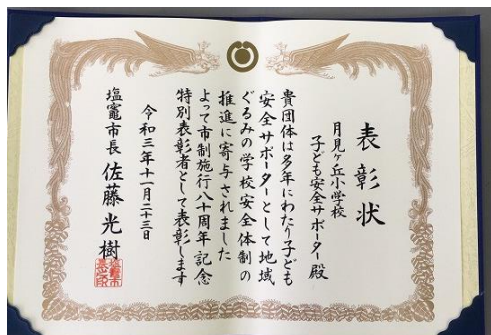 表彰状
月見ヶ丘小学校
子ども安全サポーター殿
貴団体は多年にわたり子ども
安全サポーターとして地域
ぐるみの学校安全体制の
推進に寄与されました
よって市制施行八十周年記念
特別表彰者として表彰します
令和三年十一月二十三日
塩竈市長 佐藤光樹